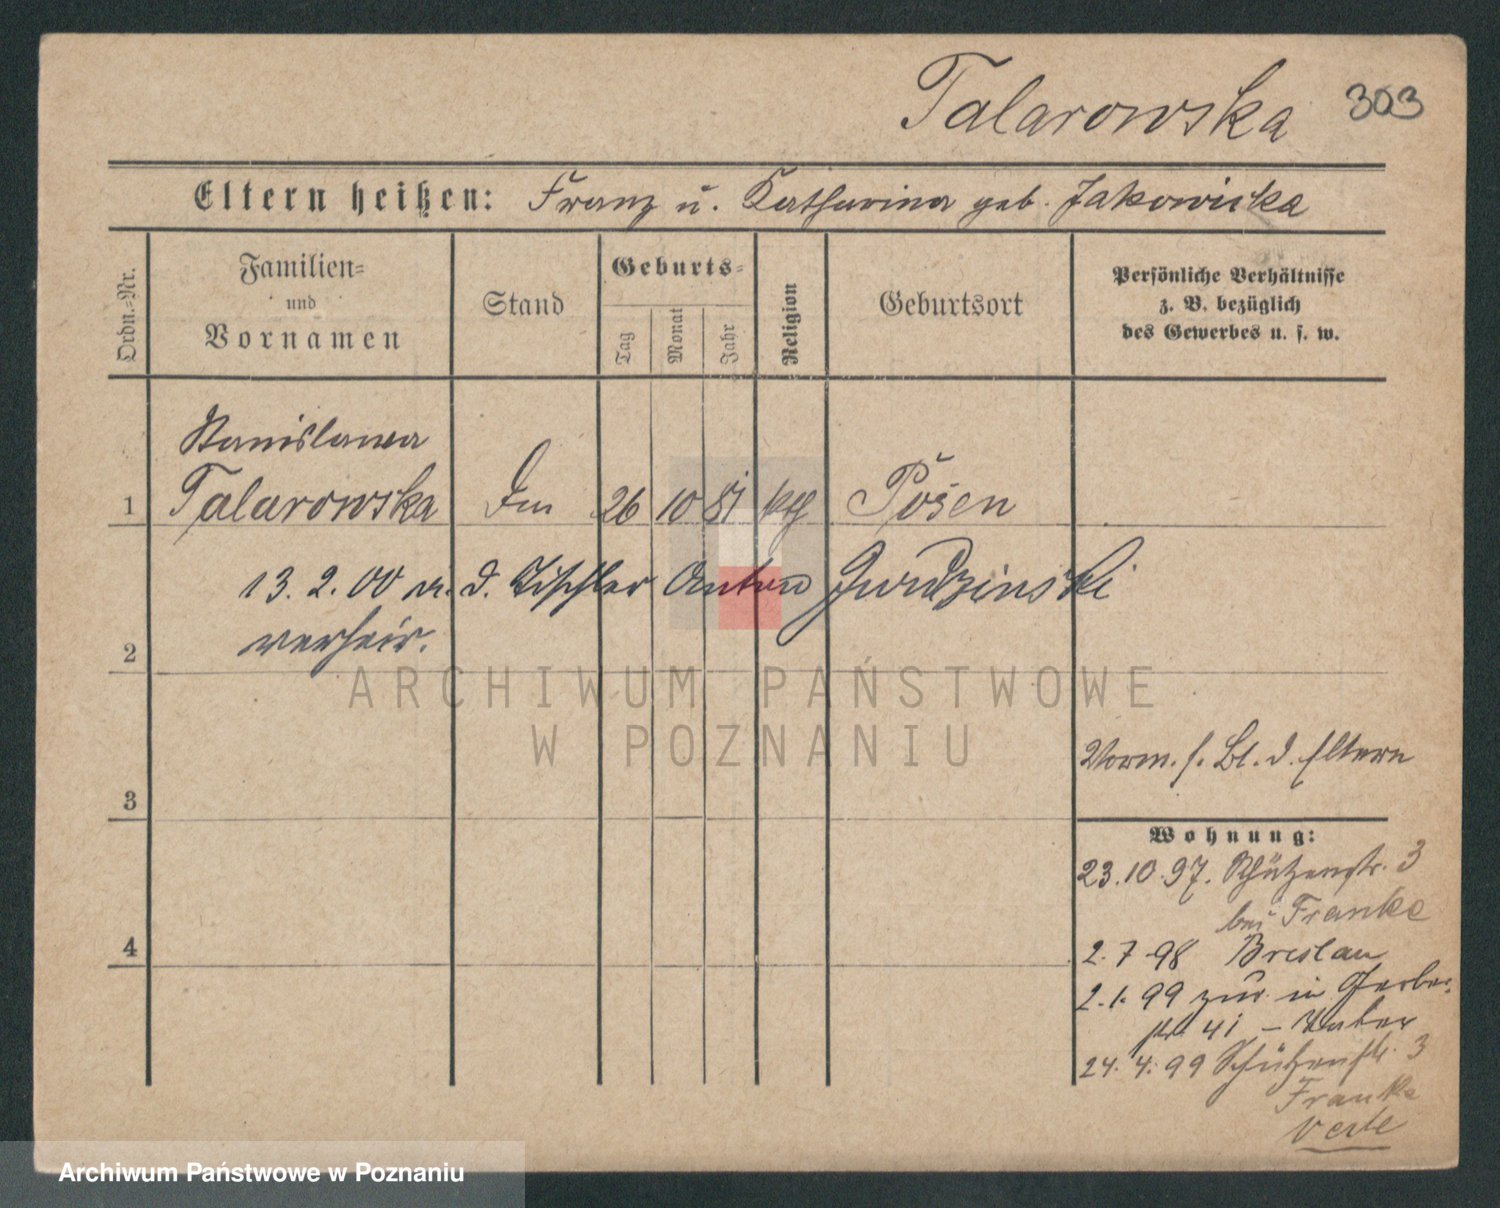 Talarowska 303
Eltern heißen: Franz u. Katharina geb. Jakowicka
Ordn.-Nr.
Familien-
und
Vornamen
Stand
Geburts-
Tag
Monat
Jahr
Religion
Geburtsort
Persönliche Verhältnisse
z. B. bezüglich
des Gewerbes u. s. w.
Stanislawa
1 Talarowska 26 10 81 Posen
13.2.00 m. d. Tischler Anton
2 verheir.
ARCHIWUM PAŃSTWOWE
W POZNANIU
Vorm. s. Bl. d. Eltern
3
Wohnung:
23.10.97. Schützenstr. 3
bei Franke
4
2.7.98 Breslau
2.1.99 zur. in Gerber-
str. 41 - Vater
24.4.99 Schützenstr. 3
Franke
verte
Archiwum Państwowe w Poznaniu